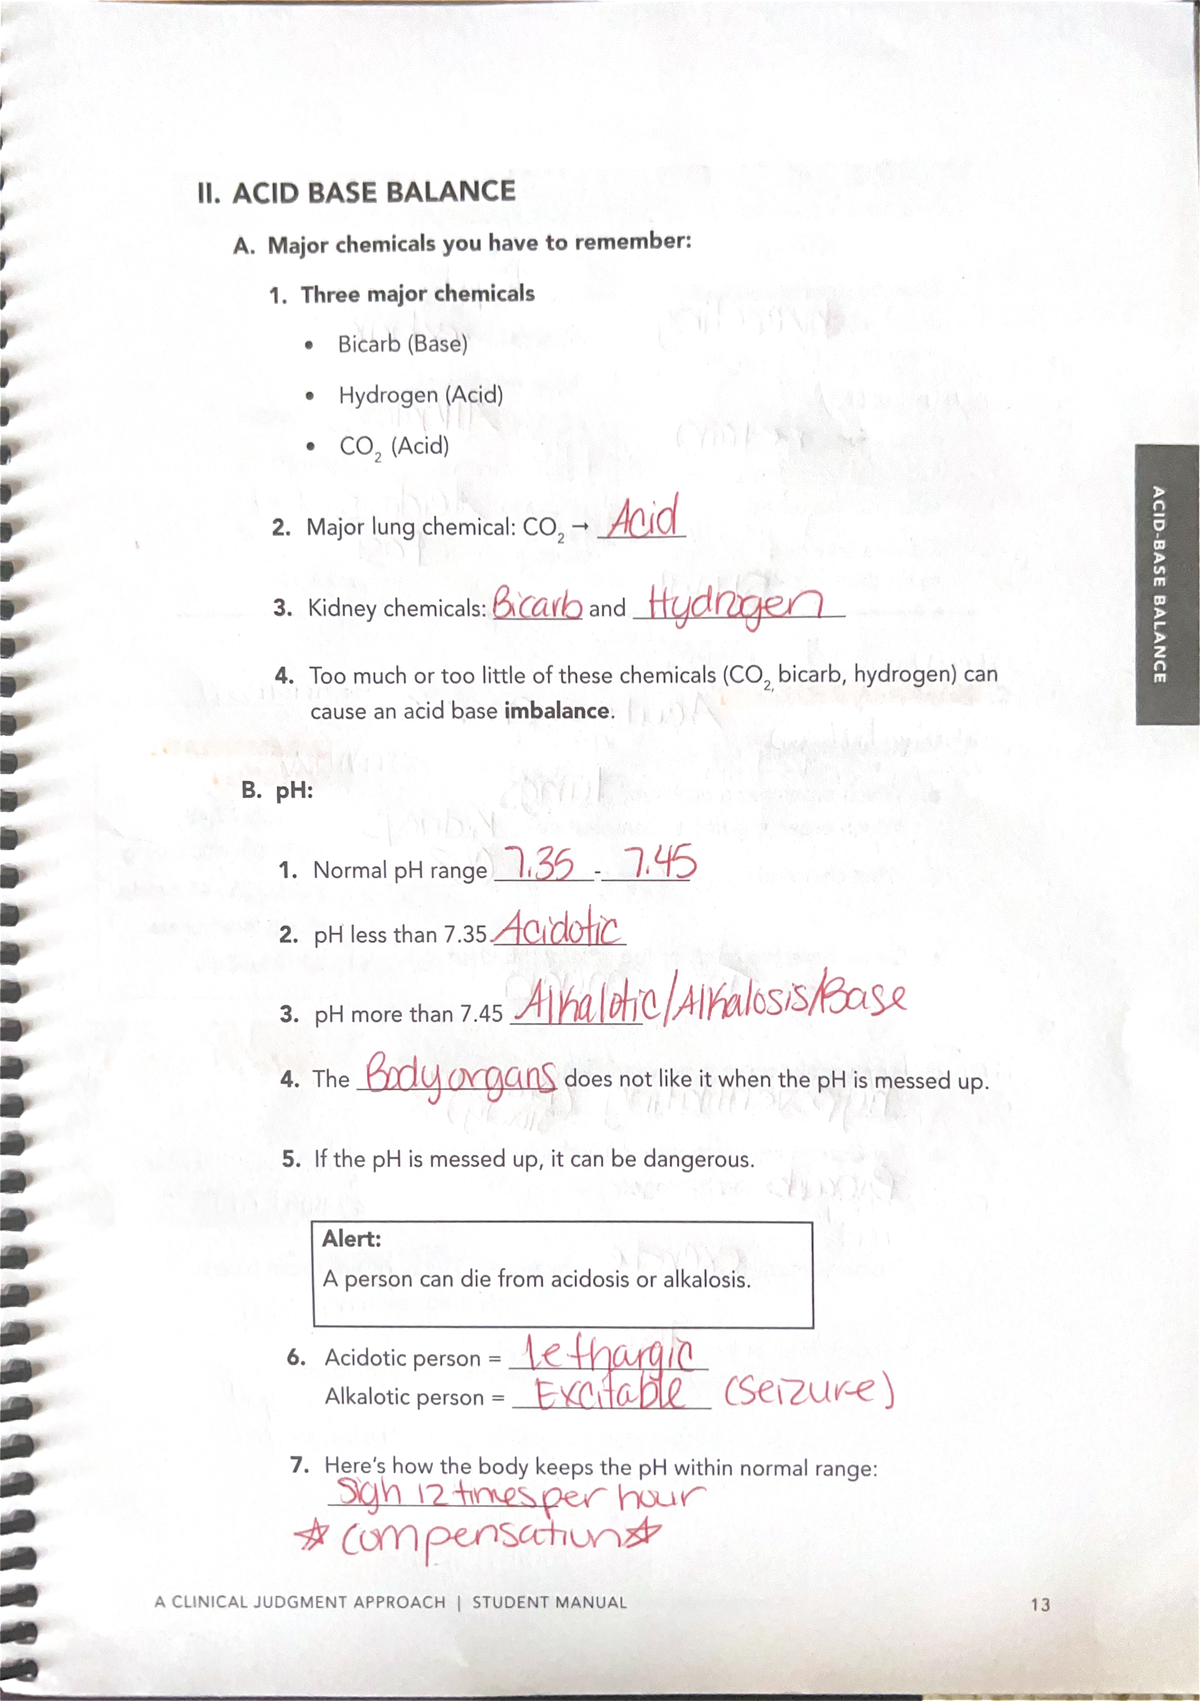 II. ACID BASE BALANCE
A. Major chemicals you have to remember:
1. Three major chemicals
• Bicarb (Base)
• Hydrogen (Acid)
• CO₂ (Acid)
2. Major lung chemical: CO₂ → Acid
3. Kidney chemicals: Bicarb and Hydrogen
4. Too much or too little of these chemicals (CO₂, bicarb, hydrogen) can
cause an acid base imbalance.
ACID-BASE BALANCE
B. pH:
1. Normal pH range 7.35 - 7.45
2. pH less than 7.35 Acidotic
3. pH more than 7.45 Alkalotic/Alkalosis/Base
4. The Body organs does not like it when the pH is messed up.
5. If the pH is messed up, it can be dangerous.
Alert:
A person can die from acidosis or alkalosis.
6. Acidotic person = Lethargic
Alkalotic person = Excitable (seizure)
7. Here's how the body keeps the pH within normal range:
Sigh 12 times per hour
☆ Compensation ☆
A CLINICAL JUDGMENT APPROACH | STUDENT MANUAL 13